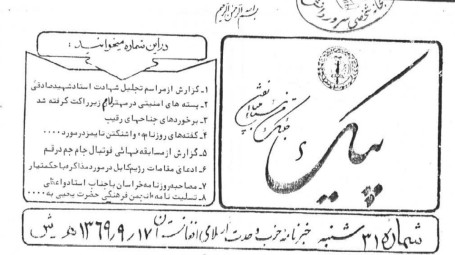 بسم الله الرحمن الرحیم
در این شماره میخوانید:
۱ـ گزارش از مراسم تجلیل شهادت استاد شهید صادقی
۲ـ پسته های امنیتی در مهترلام زیر راکت گرفته شد
۳ـ برخوردهای جناحهای رقیب
۴ـ گفته‌های روزنامه واشنگتن تایمز در مورد.....
۵ـ گزارش از مسابقه نهائی فوتبال جام جم در قم
۶ـ ادعای مقامات رژیم کابل در مورد مذاکره با حکمتیار
۷ـ مصاحبه روزنامه خراسان با جناب استاد
۸ـ تسلیت نامه انجمن فرهنگی حضرت یحیی به.....
پیک
شماره ۳۱ شنبه خبرنامه حزب وحدت اسلامی افغانستان ۱۷ر۹ر۱۳۶۹ هـ ش